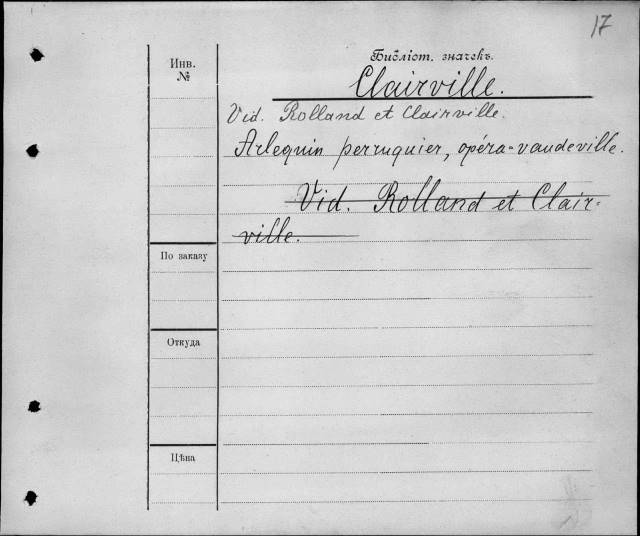 17
Инв.
№
Библіот. значекъ.
Clairville.
Vid. Rolland et Clairville.
Arlequin perruquier, opéra-vaudeville.
Vid. Rolland et Clair-
ville.
По заказу
Откуда
Цѣна